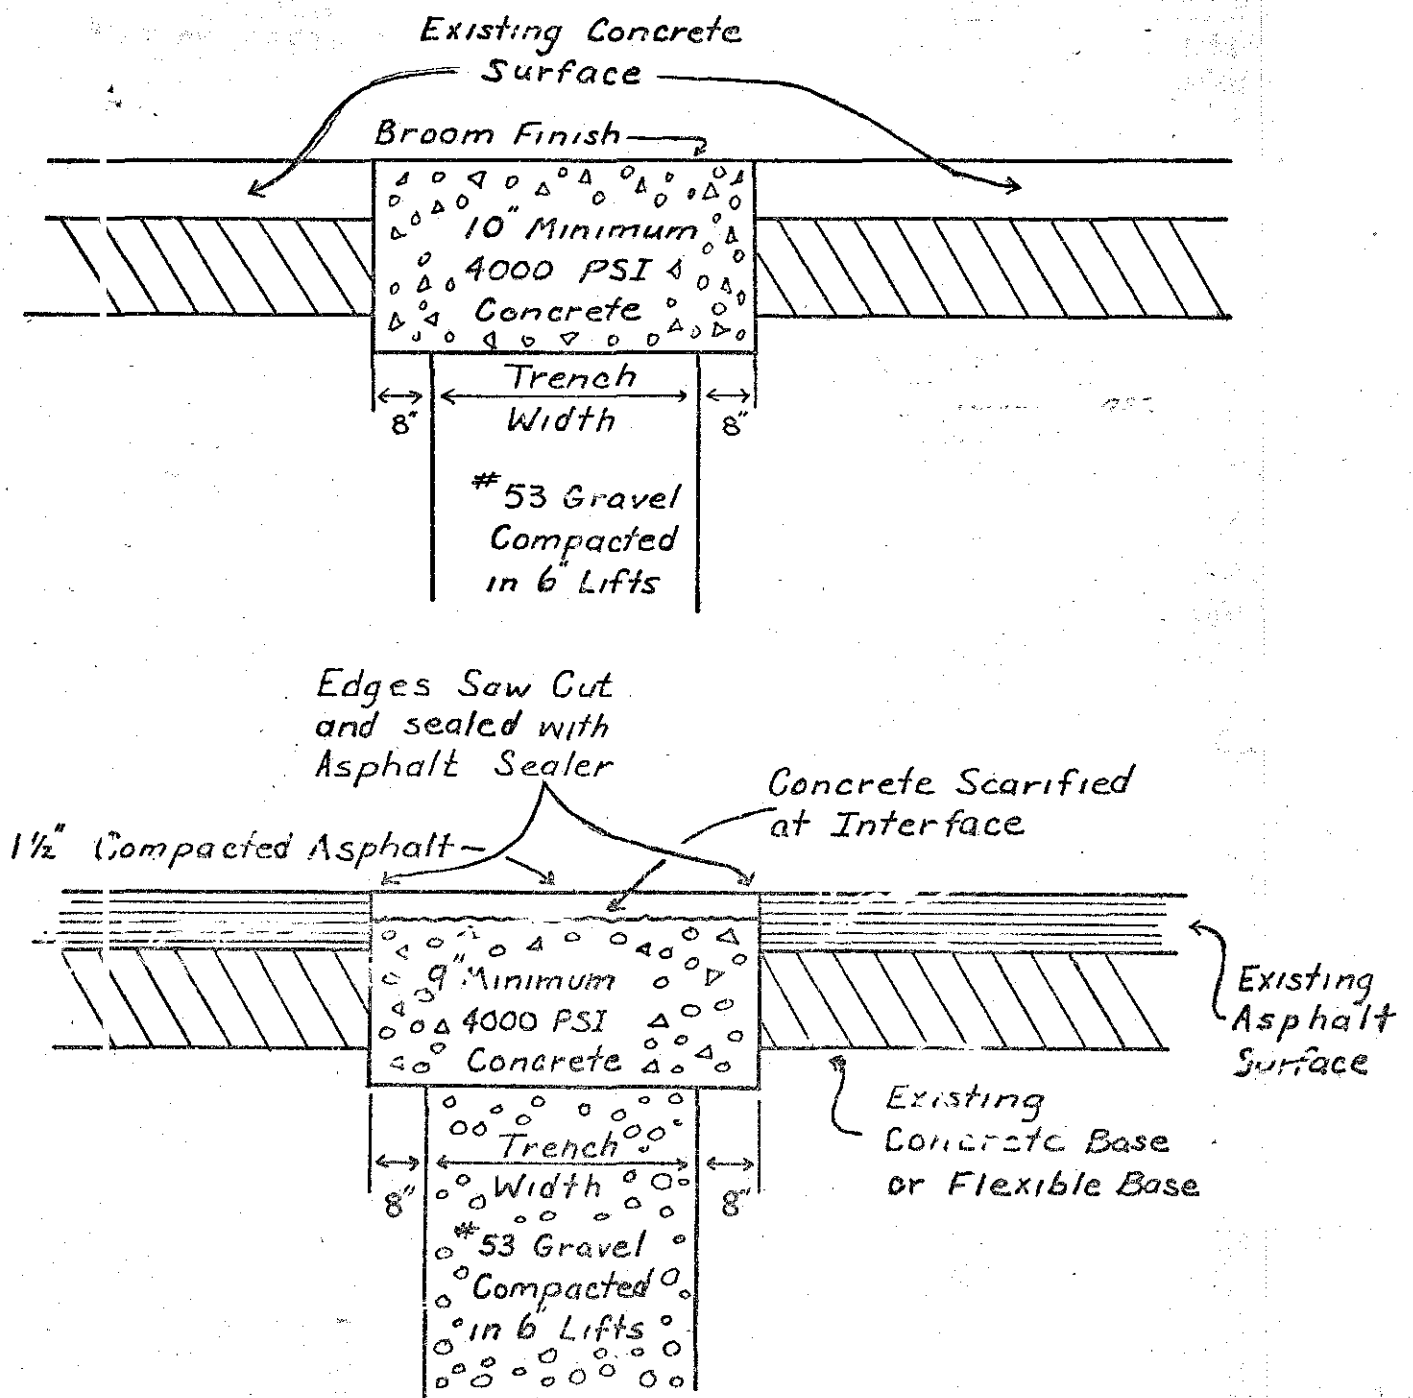 Existing Concrete
Surface
Broom Finish
10" Minimum
4000 PSI
Concrete
Trench
8" Width 8"
#53 Gravel
Compacted
in 6" Lifts
Edges Saw Cut
and sealed with
Asphalt Sealer
Concrete Scarified
at Interface
1½" Compacted Asphalt
9" Minimum
4000 PSI
Concrete
Existing
Asphalt
Surface
Existing
Concrete Base
or Flexible Base
Trench
8" Width 8"
#53 Gravel
Compacted
in 6" Lifts